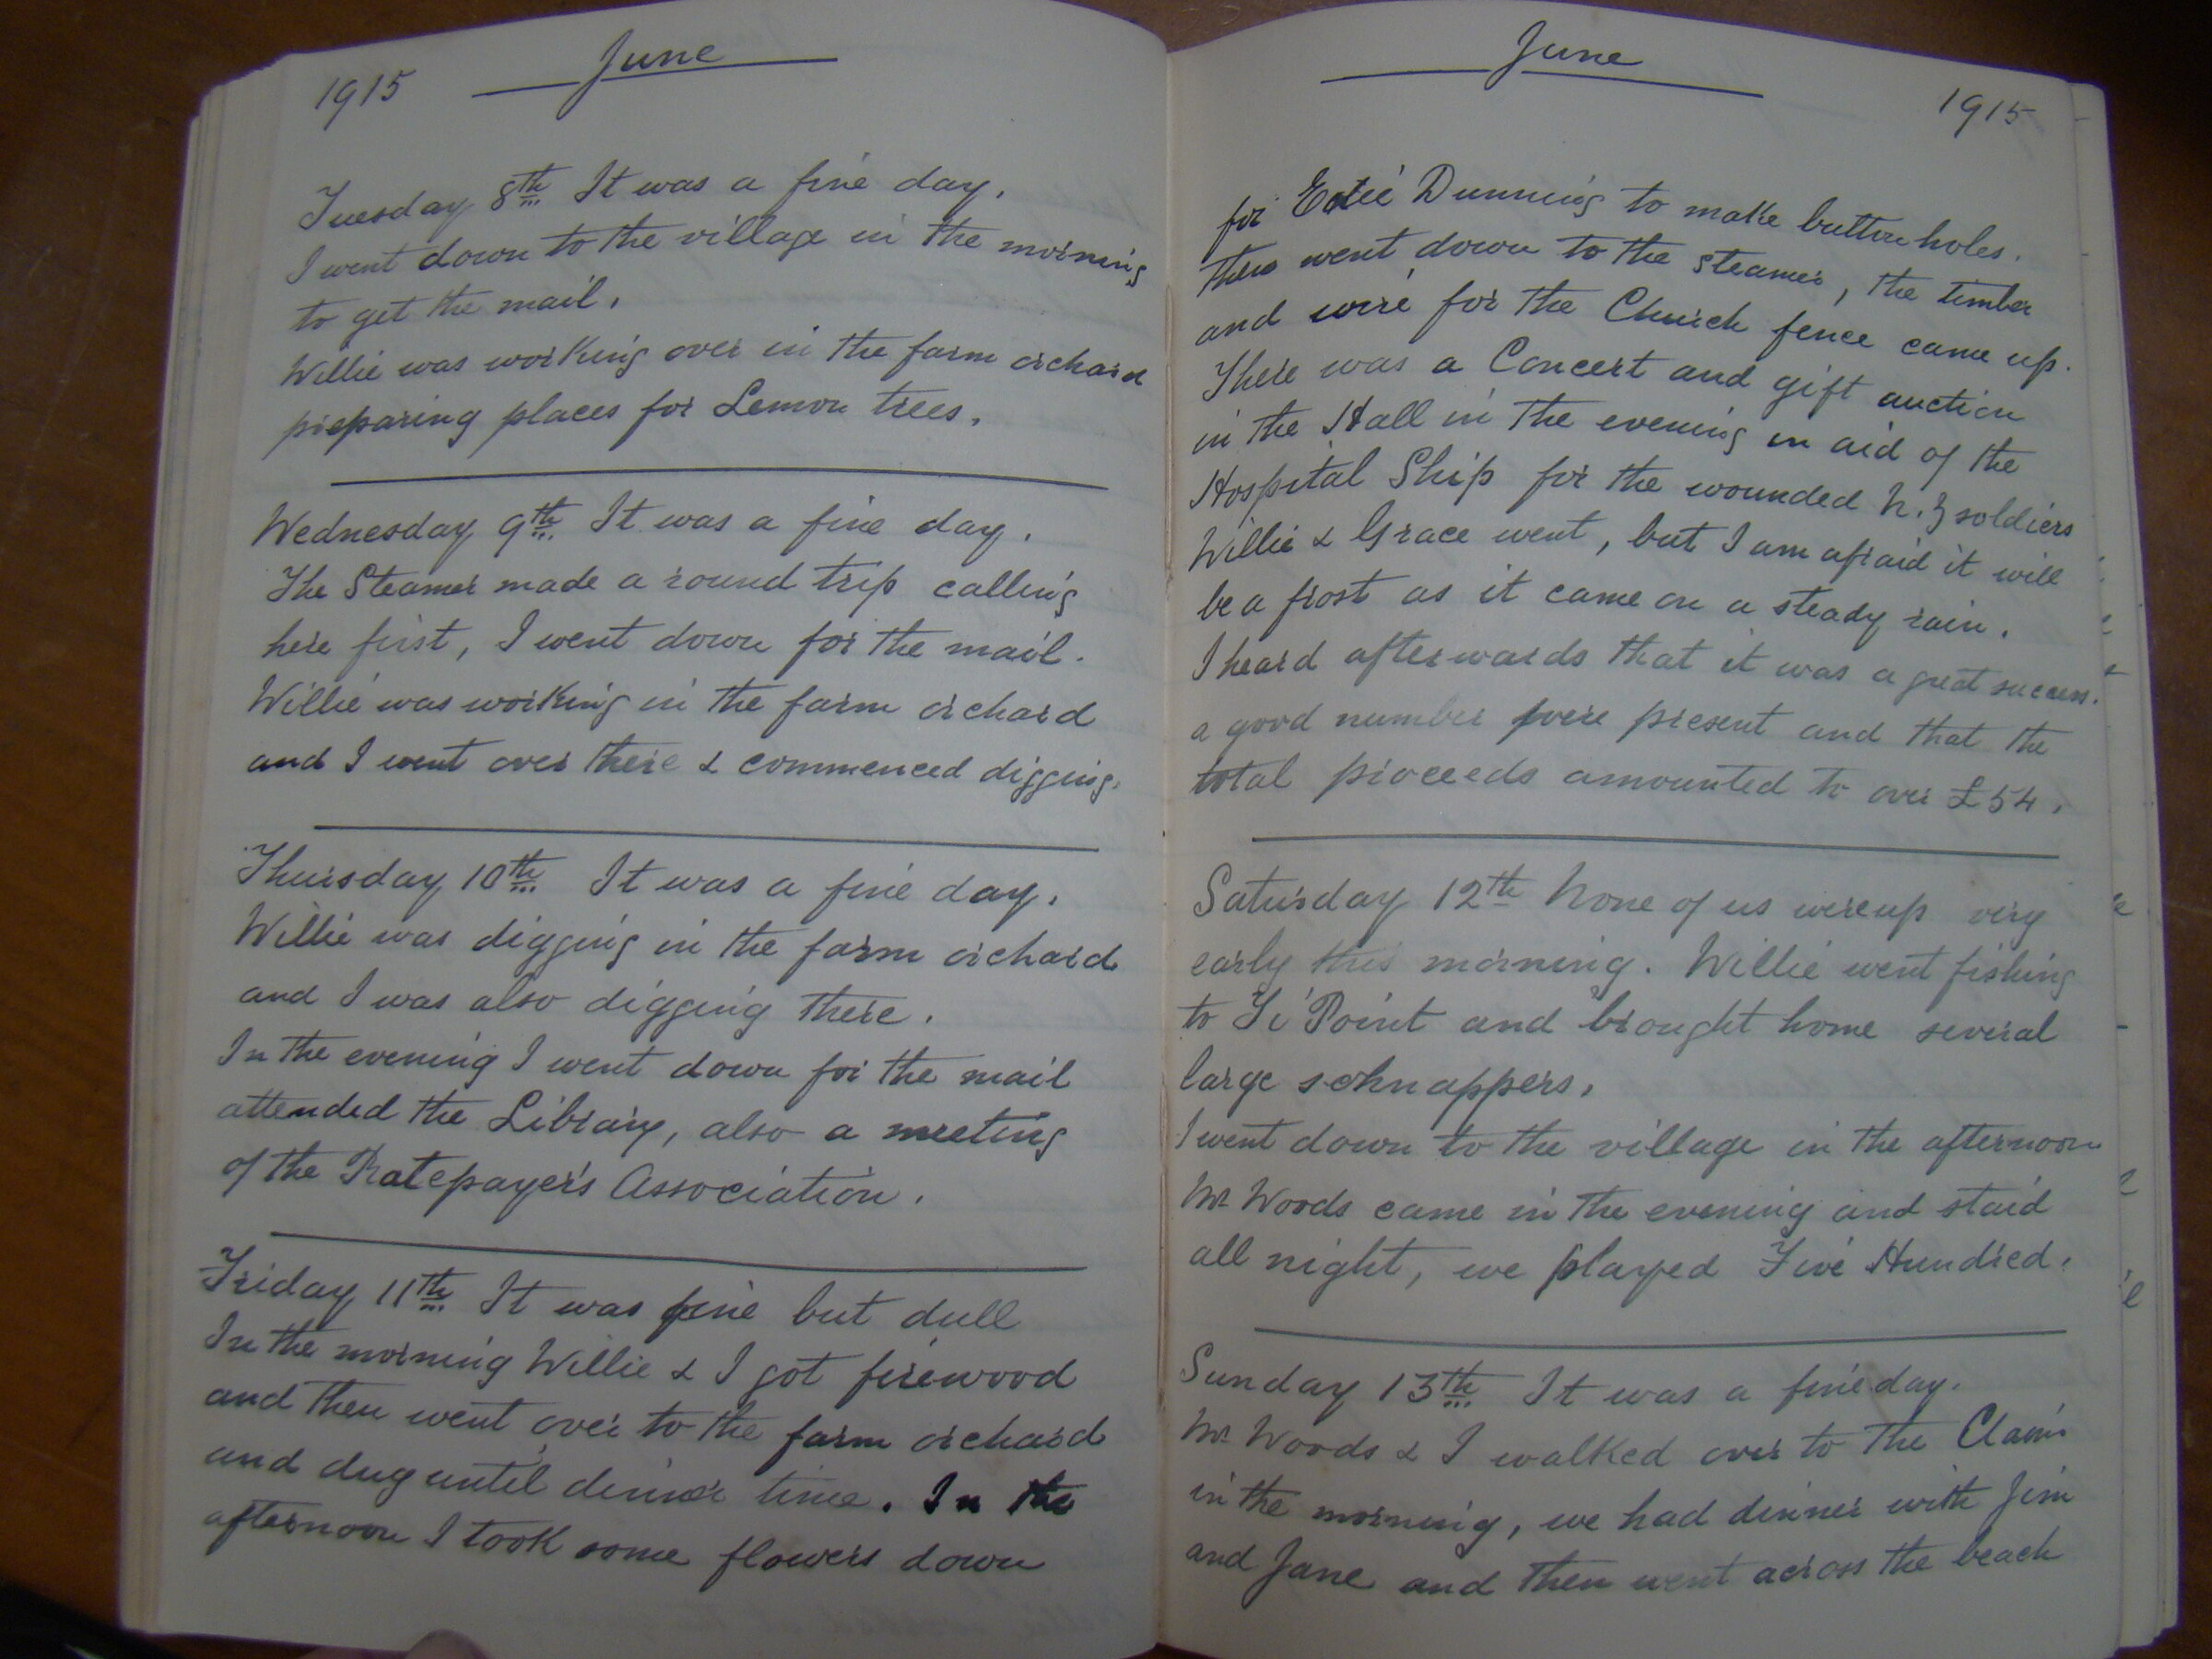 1915
June
Tuesday 8th It was a fine day.
I went down to the village in the morning
to get the mail.
Willie was working over in the farm orchard
preparing places for Lemon trees.
Wednesday 9th It was a fine day.
The Steamer made a round trip calling
here first, I went down for the mail.
Willie was working in the farm orchard
and I went over there & commenced digging.
Thursday 10th It was a fine day.
Willie was digging in the farm orchard
and I was also digging there.
In the evening I went down for the mail
attended the Library, also a meeting
of the Ratepayer's Association.
Friday 11th It was fine but dull
In the morning Willie & I got firewood
and then went over to the farm orchard
and dug until dinner time. In the
afternoon I took some flowers down
June
1915
for Dunning to make buttonholes.
then went down to the steamer, the timber
and wire for the Church fence came up.
There was a Concert and gift auction
in the Hall in the evening in aid of the
Hospital Ship for the wounded N.Z soldiers
Willie & Grace went, but I am afraid it will
be a frost as it came on a steady rain.
I heard afterwards that it was a great success.
a good number were present and that the
total proceeds amounted to over £54.
Saturday 12th None of us were up very
early this morning. Willie went fishing
to Ti Point and brought home several
large schnappers.
I went down to the village in the afternoon
Mr Woods came in the evening and staid
all night, we played Five Hundred.
Sunday 13th It was a fine day.
Mr Woods & I walked over to the Claim
in the morning, we had dinner with Jim
and Jane and then went across the beach